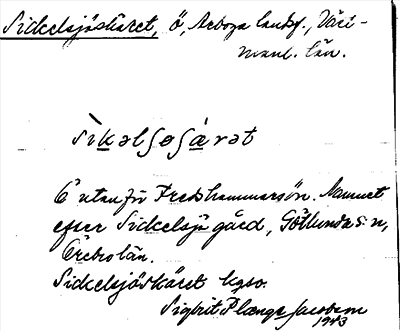 Sickelsjöskäret, ö, Arboga landsf., Väst-
manl. län.
sìkəlʃøʃä̀rət
Ö utanför Fredshammarsön. Namnet
efter Sickelsjö gård, Götlunda s:n,
Örebro län.
Sickelsjöskäret kgso.
Sigbrit Plænge Jacobson
1943